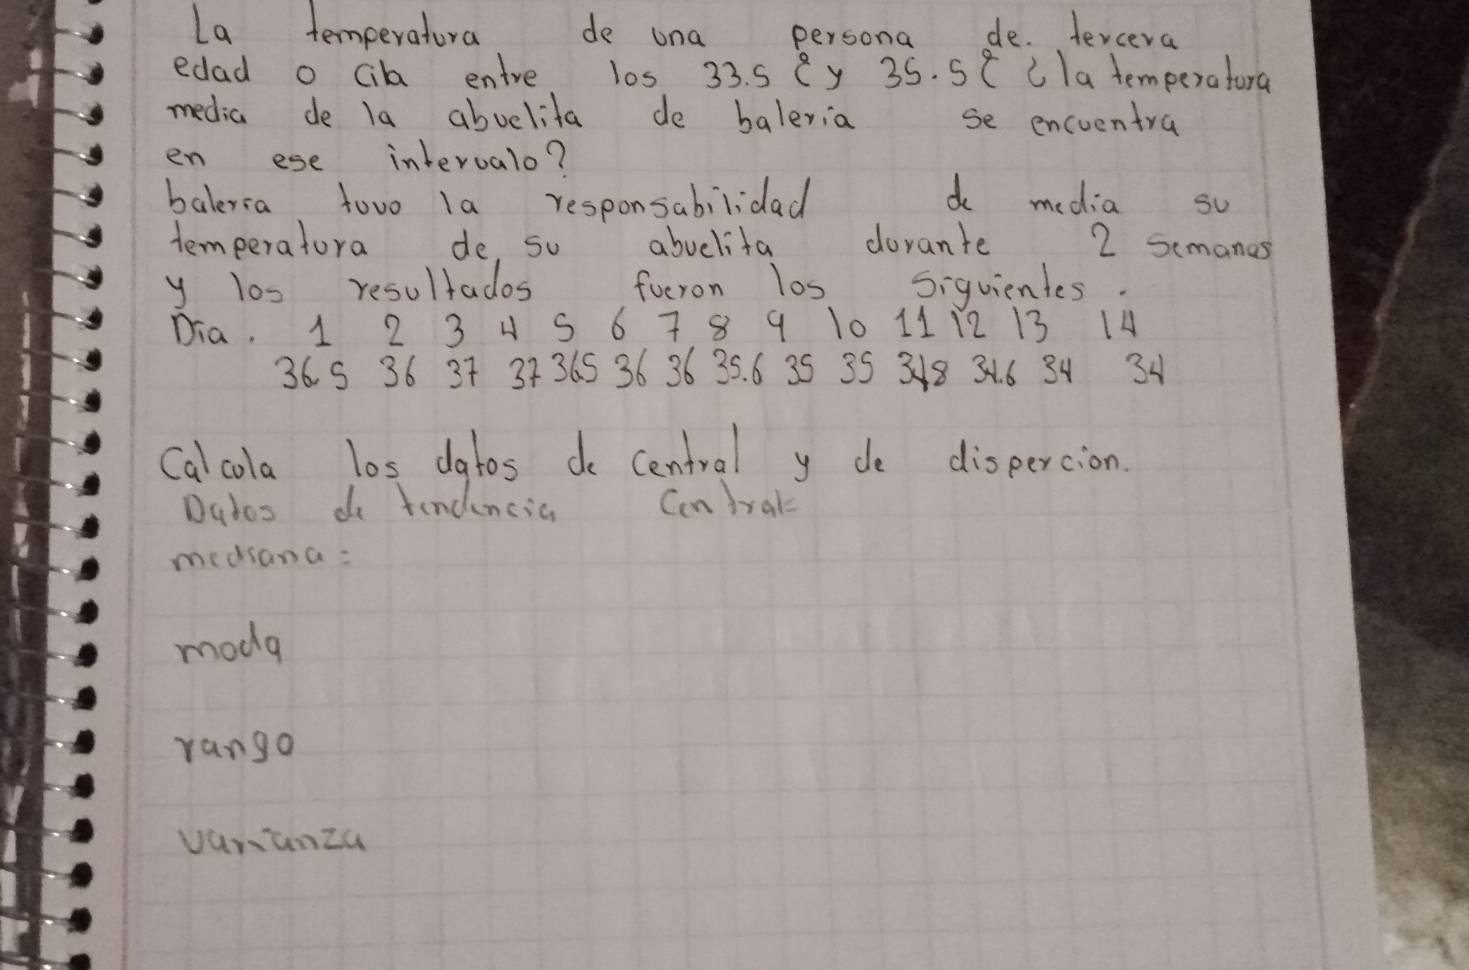 La temperatura de una persona de. tercera
edad o cila entre los 33.5 °C y 35.5 °C ¿la temperatura
media de la abuelita de baleria se encuentra
en ese intervalo?
baleria tuvo la responsabilidad de media su
temperatura de su abuelita durante 2 semanas
y los resultados fueron los siguientes.
Dia. 1 2 3 4 5 6 7 8 9 10 11 12 13 14
36.5 36 37 37 36.5 36 36 35.6 35 35 34.8 34.6 34 34
Calcula los datos de central y de dispercion.
Datos de tendencia Central=
mediana:
moda
rango
varianza